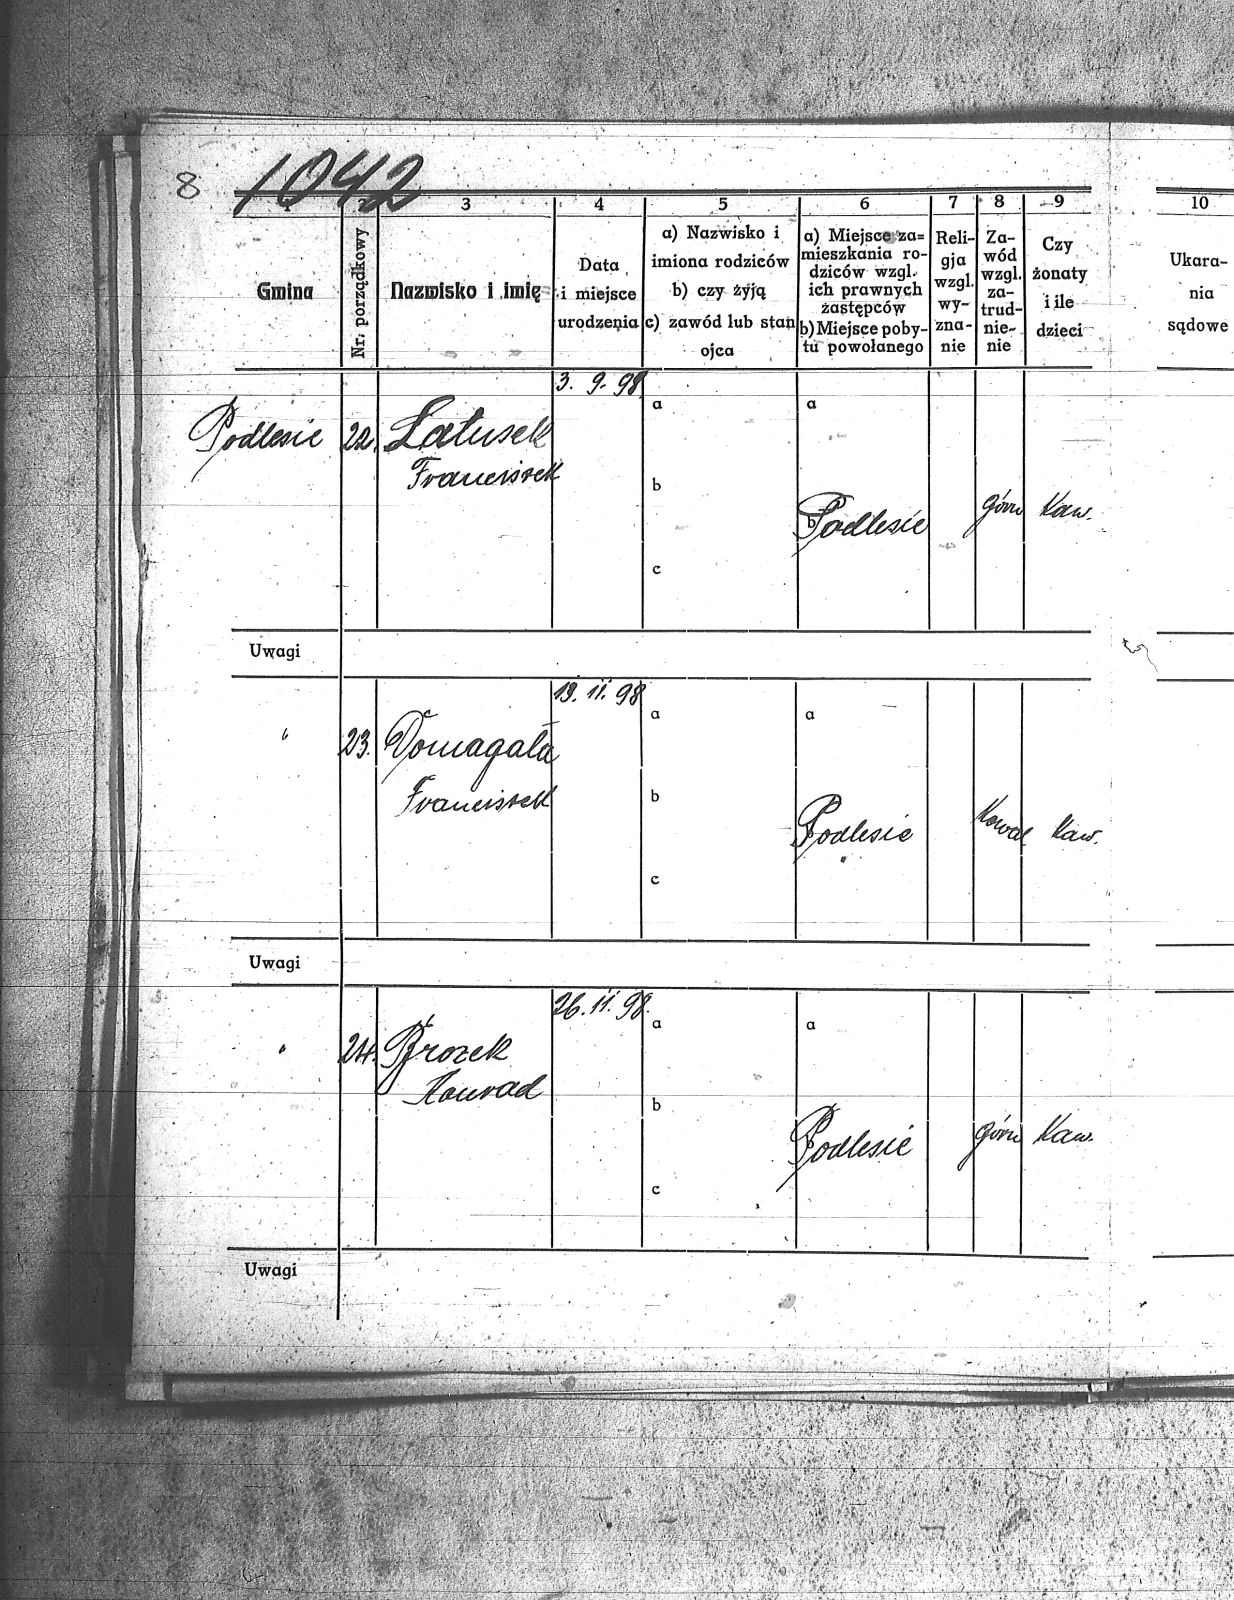 8 1042
1 2 3 4 5 6 7 8 9 10
Gmina
Nr. porządkowy
Nazwisko i imię
Data
i miejsce
urodzenia
a) Nazwisko i
imiona rodziców
b) czy żyją
c) zawód lub stan
ojca
a) Miejsce za=
mieszkania ro-
dziców wzgl.
ich prawnych
zastępców
b) Miejsce poby-
tu powołanego
Reli-
gja
wzgl.
wy-
zna-
nie
Za-
wód
wzgl.
za-
trud-
nie-
nie
Czy
żonaty
i ile
dzieci
Ukara-
nia
sądowe
3. 9. 98
a a
Podlesie 22. Latusek
Franciszek
b
b Podlesie górn Kaw.
c
Uwagi
19. 11. 98
a a
" 23. Domagała
Franciszek
b
Podlesie Kowal Kaw.
c
Uwagi
26. 11. 98.
a a
" 24. Brozek
Konrad
b
Podlesie górn Kaw.
c
Uwagi